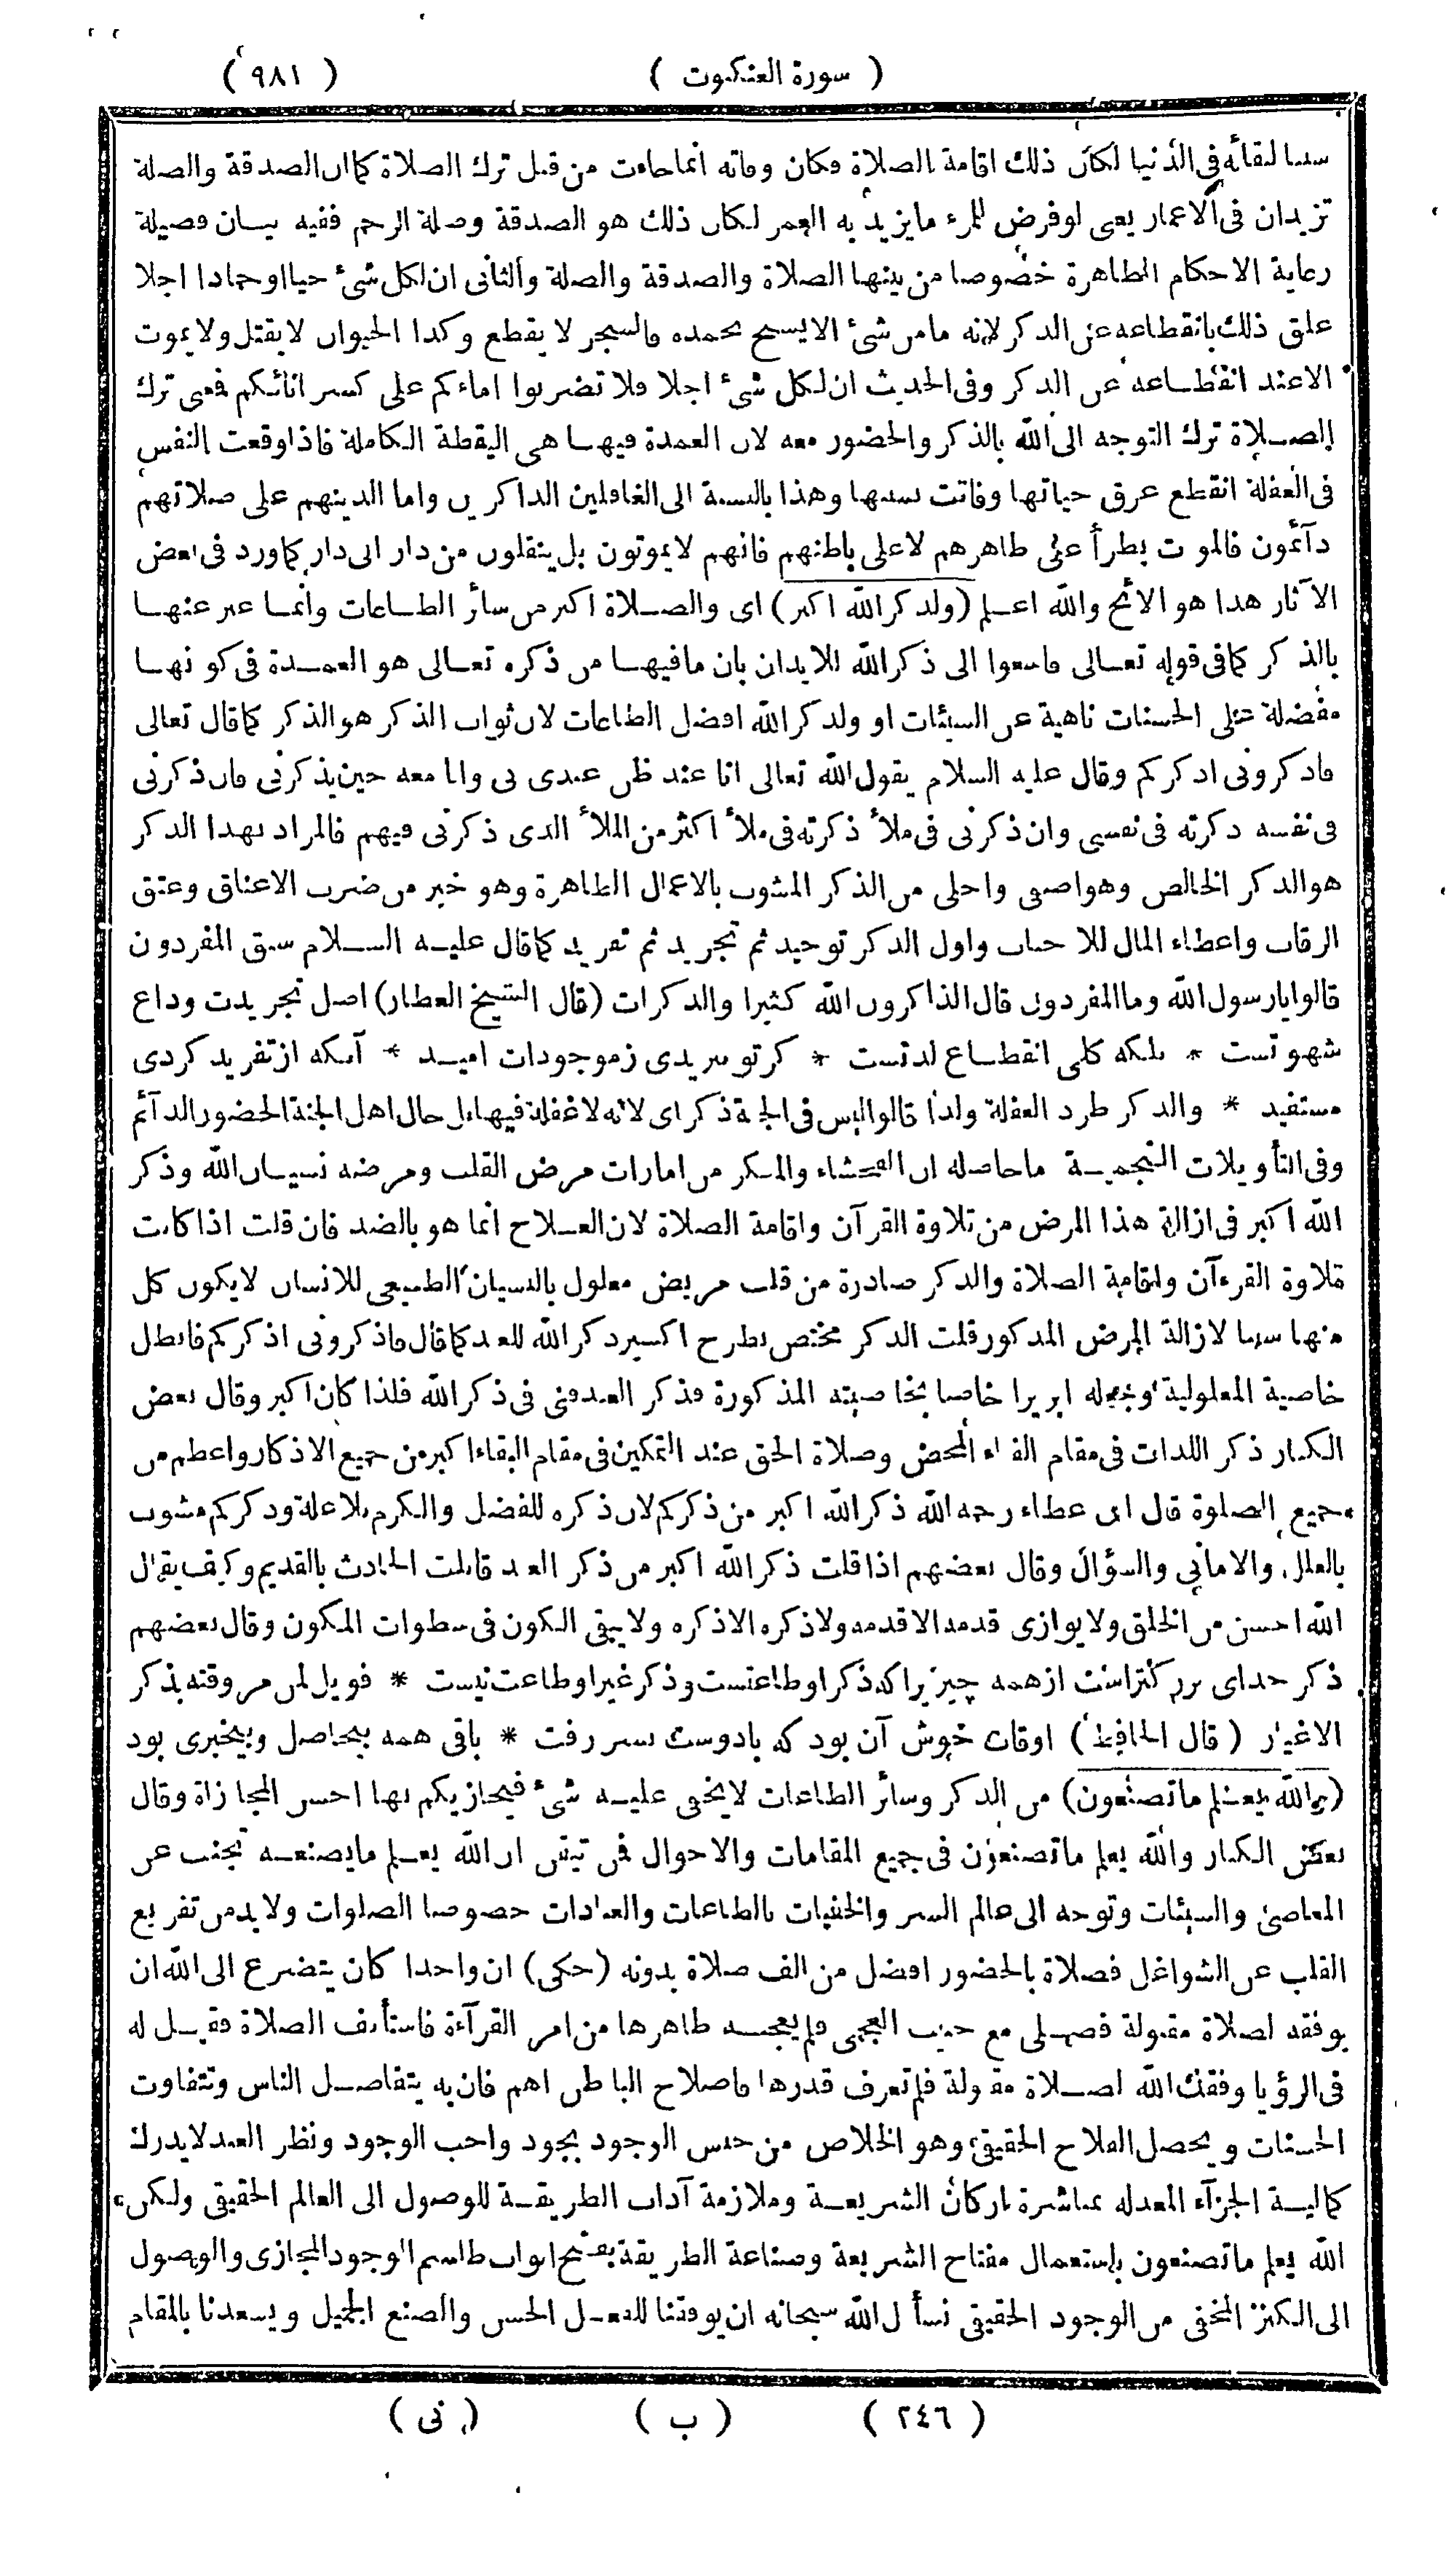 ( سورة العنكبوت ) ( ٩٨١ )
سببا لبقائه فى الدنيا لكان ذلك اقامة الصلاة فكان وفاته انما جاءت من قبل ترك الصلاة كما ان الصدقة والصلة
تزيدان فى الاعمار يعنى لو فرض للمرء ما يزيد به العمر لكان ذلك هو الصدقة وصلة الرحم ففيه بيان فضيلة
رعاية الاحكام الظاهرة خصوصا من بينها الصلاة والصدقة والصلة والثانى ان لكل شئ حيا او جمادا اجلا
علق ذلك بانقطاعه عن الذكر لانه ما من شئ الا يسبح بحمده فالشجر لا يقطع وكذا الحيوان لا يقتل ولا يموت
الا عند انقطاعه عن الذكر وفى الحديث ان لكل شئ اجلا فلا تضربوا اماءكم على كسر انائكم فمعنى ترك
الصلاة ترك التوجه الى الله بالذكر والحضور معه لان العمدة فيها هى اليقظة الكاملة فاذا وقعت النفس
فى الغفلة انقطع عرق حياتها وفاتت بسببها وهذا بالنسبة الى الغافلين الذاكرين واما الذينهم على صلاتهم
دآئمون فالموت يطرأ على ظاهرهم لا على باطنهم فانهم لا يموتون بل ينقلون من دار الى دار كما ورد فى بعض
الآثار هذا هو الالٔح والله اعلم (ولذكر الله اكبر) اى والصلاة اكبر من سائر الطاعات وانما عبر عنها
بالذكر كما فى قوله تعالى فاسعوا الى ذكر الله للايذان بان ما فيها من ذكره تعالى هو العمدة فى كونها
مفضلة على الحسنات ناهية عن السيئات او ولذكر الله افضل الطاعات لان ثواب الذكر هو الذكر كما قال تعالى
فاذكرونى اذكركم وقال عليه السلام يقول الله تعالى انا عند ظن عبدى بى وانا معه حين يذكرنى فان ذكرنى
فى نفسه ذكرته فى نفسى وان ذكرنى فى ملأ ذكرته فى ملأ اكثر من الملأ الذى ذكرنى فيهم فالمراد بهذا الذكر
هو الذكر الخالص وهو اصفى واجلى من الذكر المشوب بالاعمال الظاهرة وهو خير من ضرب الاعناق وعتق
الرقاب واعطاء المال للاحباب واول الذكر توحيد ثم تجريد ثم تفريد كما قال عليه السلام سبق المفردون
قالوا يا رسول الله وما المفردون قال الذاكرون الله كثيرا والذكرات (قال الشيخ العطار) اصل تجريدت وداع
شهوتست * بلكه كلى انقطاع لذتست * كر تو ببريدى زموجودات اميد * آنكه از تفريد كردى
مستفيد * والذكر طرد الغفلة ولذا قالوا ليس فى الجنة ذكر اى لانه لا غفلة فيها بل حال اهل الجنة الحضور الدآئم
وفى التأويلات النجمية ما حاصله ان الفحشاء والمنكر من امارات مرض القلب ومرضه نسيان الله وذكر
الله اكبر فى ازالة هذا المرض من تلاوة القرآن واقامة الصلاة لان العلاج انما هو بالضد فان قلت اذا كانت
تلاوة القرءآن واقامة الصلاة والذكر صادرة من قلب مريض معلول بالنسيان الطبيعى للانسان لا يكون كل
منها سببا لازالة المرض المذكور قلت الذكر مختص بطرح اكسير ذكر الله للعبد كما قال فاذكرونى اذكركم فابطل
خاصية المعلولية وجعله ابريزا خاصا بخاصيته المذكورة فذكر العبد فنى فى ذكر الله فلذا كان اكبر وقال بعض
الكبار ذكر اللذات فى مقام الفناء المحض وصلاة الحق عند التمكين فى مقام البقاء اكبر من جميع الاذكار واعظم من
جميع الصلوة قال ابن عطاء رحمه الله ذكر الله اكبر من ذكركم لان ذكره للفضل والكرم بلا علة وذكركم مشوب
بالعلل والامانى والسؤال وقال بعضهم اذا قلت ذكر الله اكبر من ذكر العبد قابلت الحادث بالقديم وكيف يقال
الله احسن من الخلق ولا يوازى قدمه الا قدمه ولا ذكره الا ذكره ولا يبقى الكون فى سطوات المكون وقال بعضهم
ذكر خداى بزركتراست از همه چيز زيرا كه ذكر او طاعتست وذكر غير او طاعت نيست * فويل لمن مر وقته بذكر
الاغيار (قال الحافظ) اوقات خوش آن بود كه با دوست بسر رفت * باقى همه بيحاصل وبيخبرى بود
(والله يعلم ما تصنعون) من الذكر وسائر الطاعات لا يخفى عليه شئ فيجازيكم بها احسن المجازاة وقال
بعض الكبار والله يعلم ما تصنعون فى جميع المقامات والاحوال فمن تيقن ان الله يعلم ما يصنعه تجنب عن
المعاصى والسيئات وتوجه الى عالم السر والخفيات بالطاعات والعبادات خصوصا الصلوات ولا بد من تفريغ
القلب عن الشواغل فصلاة بالحضور افضل من الف صلاة بدونه (حكى) ان واحدا كان يتضرع الى الله ان
يوفقه لصلاة مقبولة فصلى مع حبيب العجمى فلم يعجبه ظاهرها من امر القرآءة فاستأنف الصلاة فقيل له
فى الرؤيا وفقك الله لصلاة مقبولة فلم تعرف قدرها فاصلاح الباطن اهم فان به يتفاضل الناس وتتفاوت
الحسنات ويحصل الفلاح الحقيقى وهو الخلاص من حبس الوجود بجود واجب الوجود ونظر العبد لا يدرك
كمالية الجزآء المعد له بمباشرة اركان الشريعة وملازمة آداب الطريقة للوصول الى العالم الحقيقى ولكن
الله يعلم ما تصنعون باستعمال مفتاح الشريعة وصناعة الطريقة بفتح ابواب طلسم الوجود المجازى والوصول
الى الكنز المخفى من الوجود الحقيقى نسأل الله سبحانه ان يوفقنا للفعل الحسن والصنع الجميل ويسعدنا بالمقام
( ٢٤٦ ) ( ب ) ( نى )